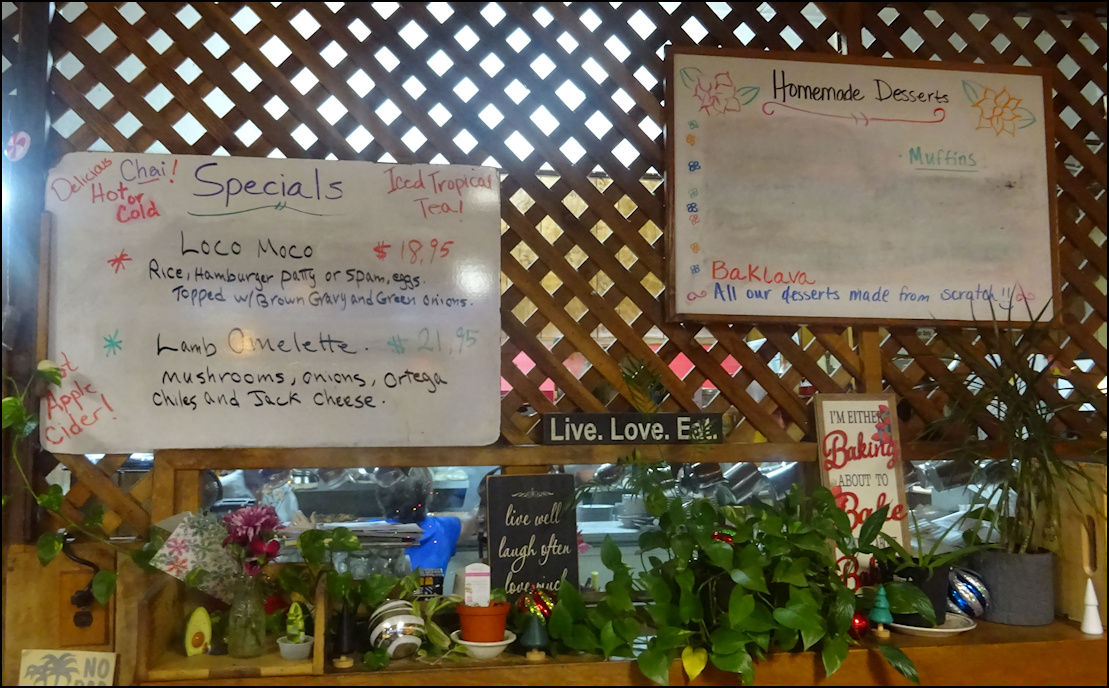 Delicious Chai!
Hot or
Cold
Specials
Iced Tropical
Tea!
Loco Moco $18.95
Rice, Hamburger patty or spam, eggs.
Topped w/ Brown Gravy and Green onions.
Lamb Omelette. $21.95
mushrooms, onions, ortega
chiles and Jack cheese.
Apple
Cider!
Homemade Desserts
Muffins
Baklava
All our desserts made from scratch!!
Live. Love. Eat.
live well
laugh often
love much
I'M EITHER
Baking
ABOUT TO
Bake
NO